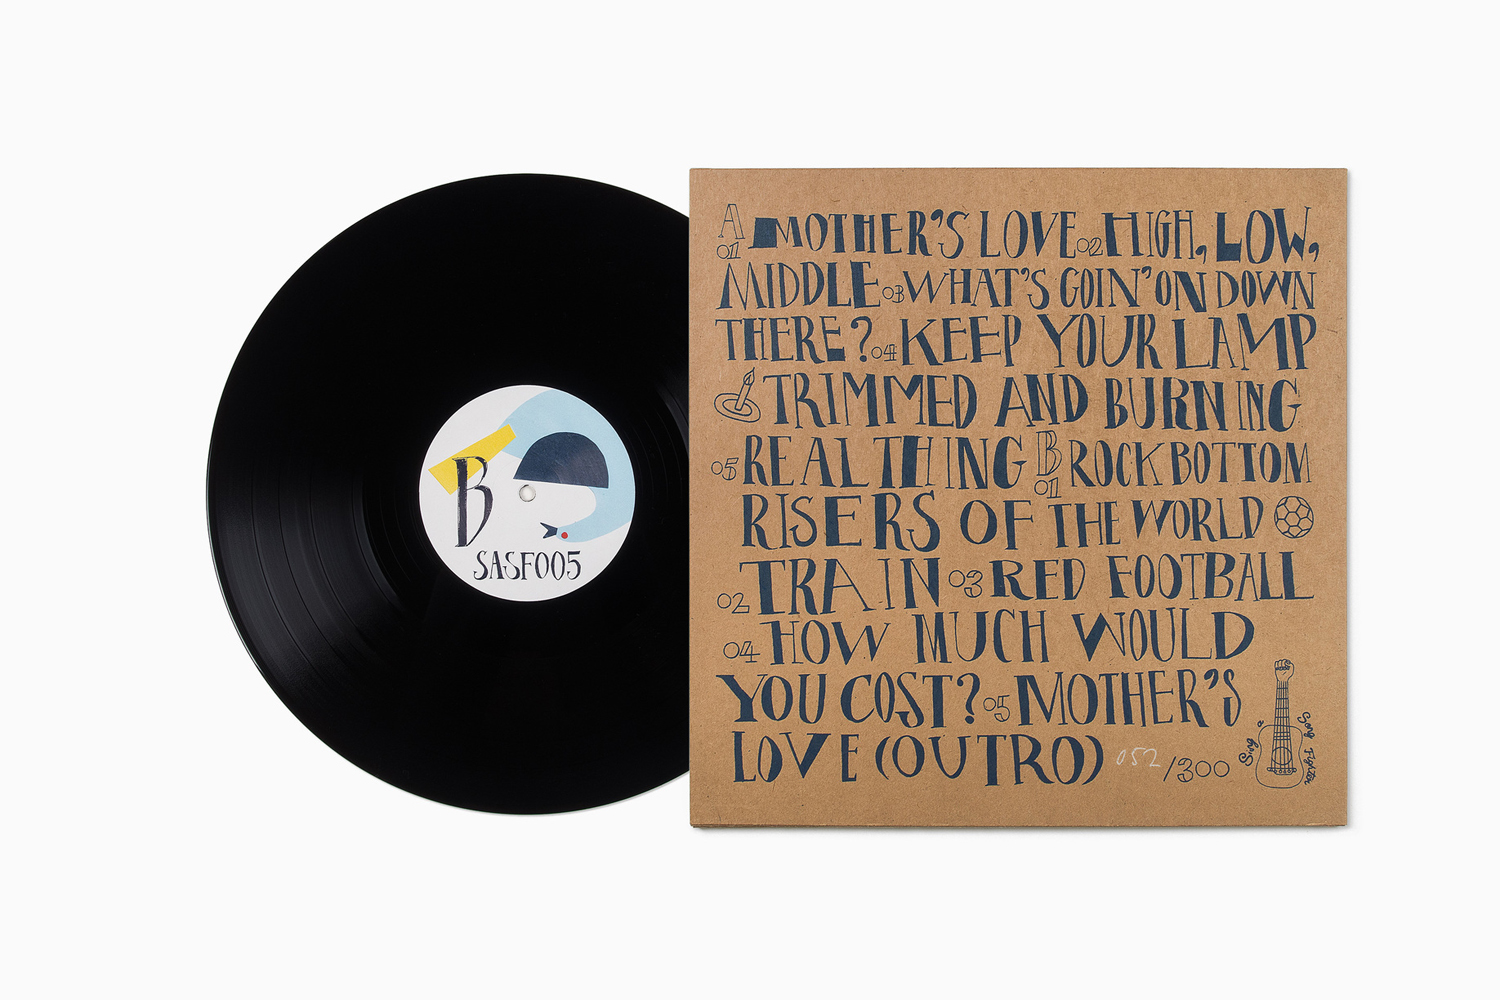 B
SASF005
A
01 MOTHER'S LOVE 02 HIGH, LOW,
MIDDLE 03 WHAT'S GOIN' ON DOWN
THERE? 04 KEEP YOUR LAMP
TRIMMED AND BURNING
05 REAL THING B 01 ROCK BOTTOM
RISERS OF THE WORLD
02 TRAIN 03 RED FOOTBALL
04 HOW MUCH WOULD
YOU COST? 05 MOTHER'S
LOVE (OUTRO) 052/300
Sing a Song Fighter